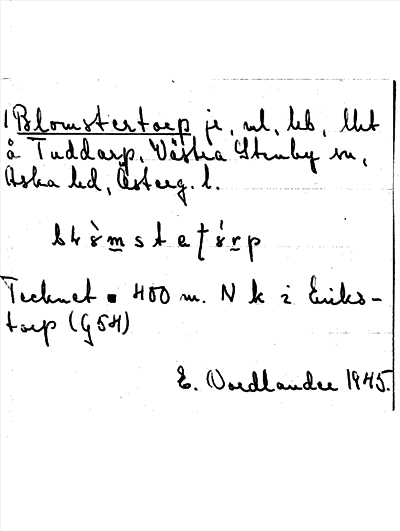 Blomstertorp je, nl, hb, lht
å Tuddarp, Västra Stenby sn,
Aska hd, Österg. l.
Tecknet ▪ 400 m. N k i Eriks-
torp (G54)
E. Nordlander 1945.